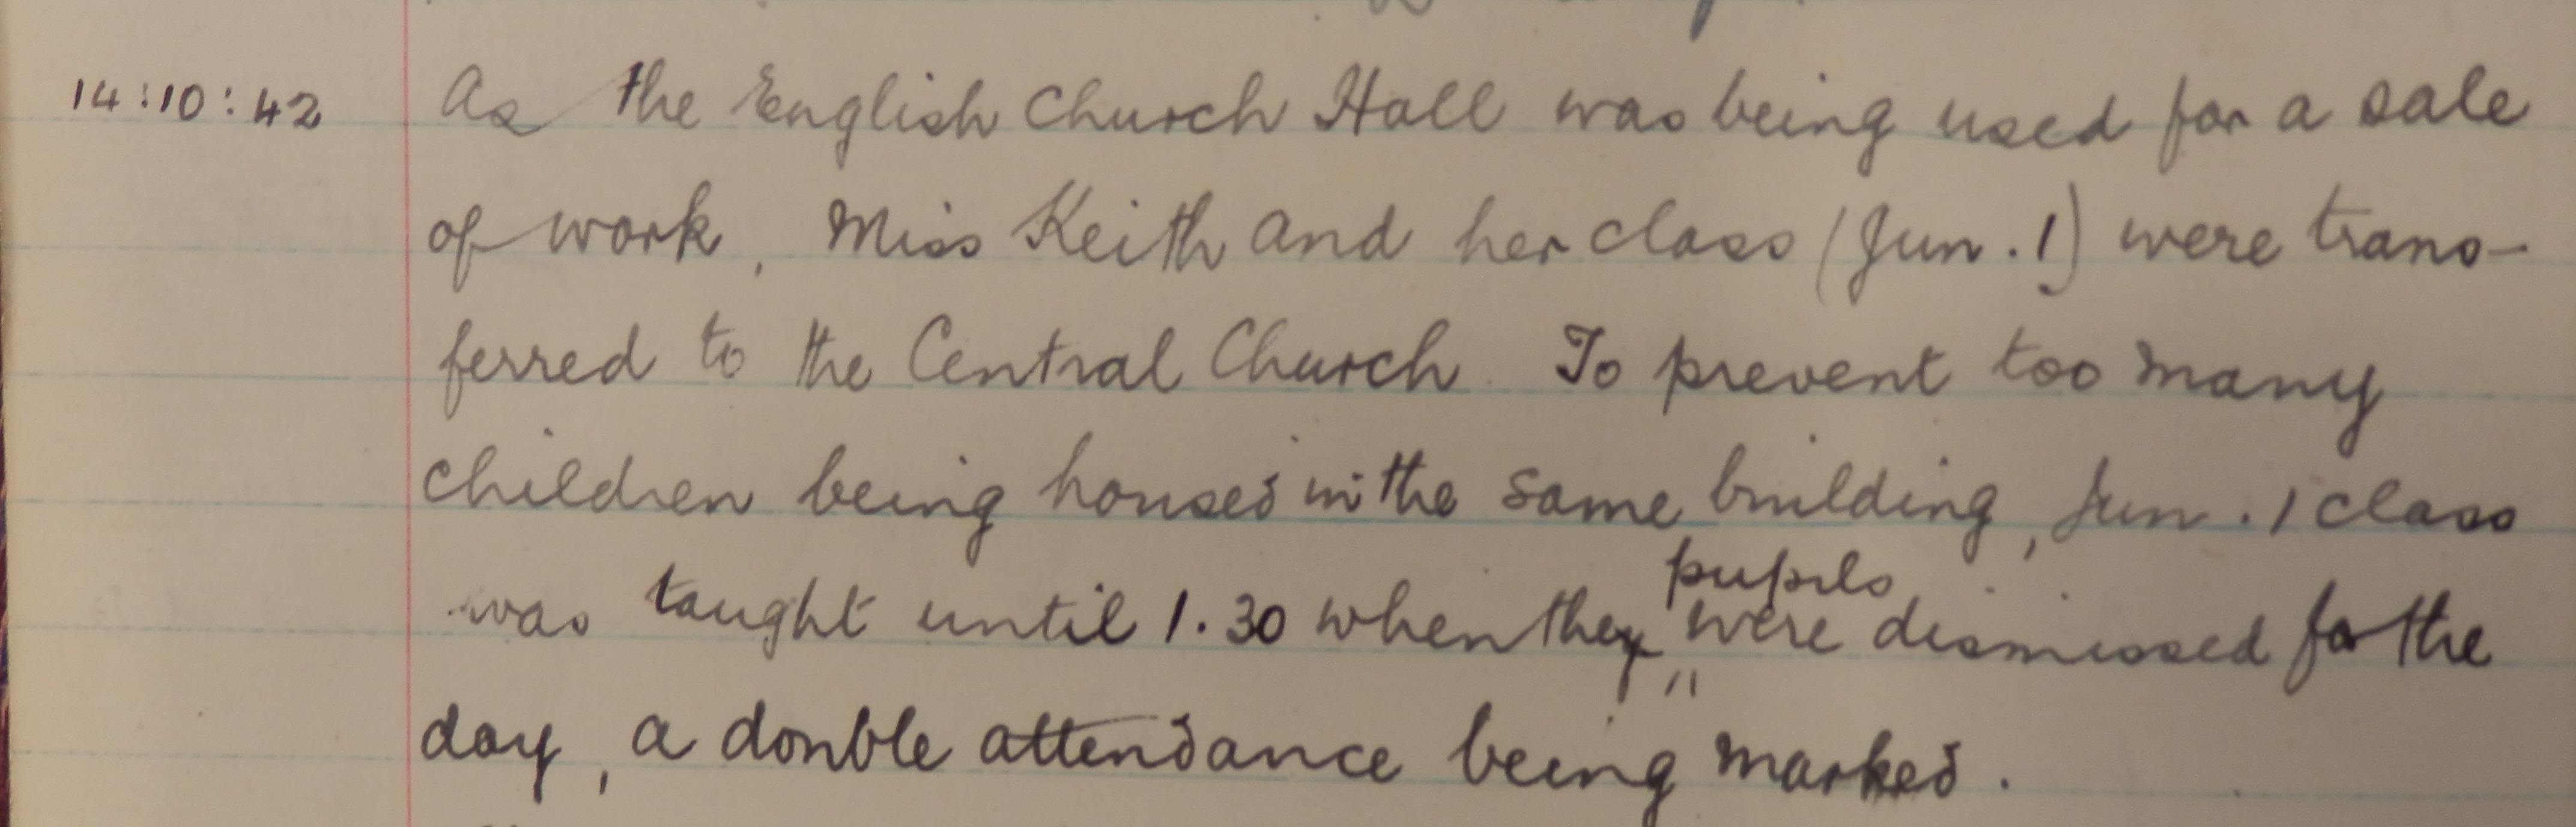 14:10:42 As the English Church Hall was being used for a sale
of work, Miss Keith and her class (Jun. 1) were trans-
ferred to the Central Church. To prevent too many
children being housed in the same building, Jun. 1 class
pupils
was taught until 1.30 when the were dismissed for the
day, a double attendance being marked.